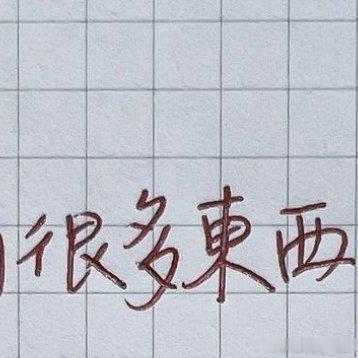 很多東西